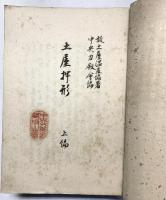 故土屋温直編著
中央刀剣会編
土屋押形
上編